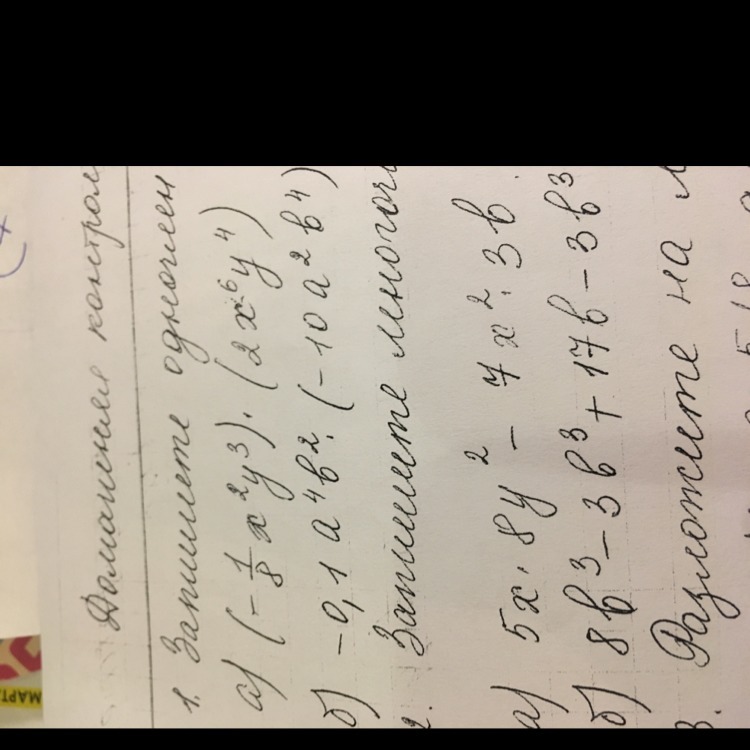 Домашняя контрол
1. Запишите одночлен
а) (-1/8 x²y³)·(2x⁶y⁴)
б) -0,1a⁴b²·(-10a²b⁴)
2. Запишите многочл
а) 5x·8y² - 7x²·3b
б) 8b³-3b³+17b-3b³
3. Разложите на
МАРТ